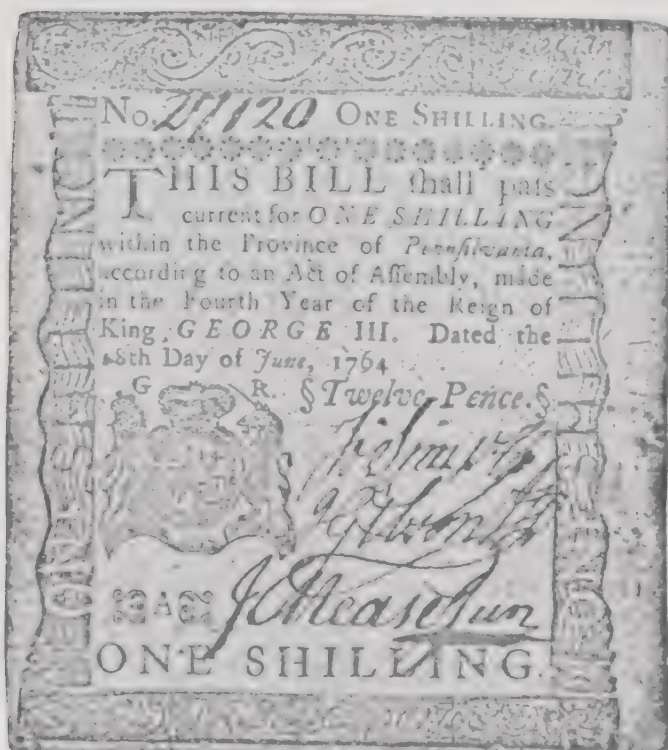 No. 27120 ONE SHILLING.
THIS BILL ſhall paſs
current for ONE SHILLING
within the Province of Pennſilvania,
according to an Act of Aſſembly, made
in the Fourth Year of the Reign of
King GEORGE III. Dated the
18th Day of June, 1764
G R. § Twelve-Pence. §
A
ONE SHILLING.